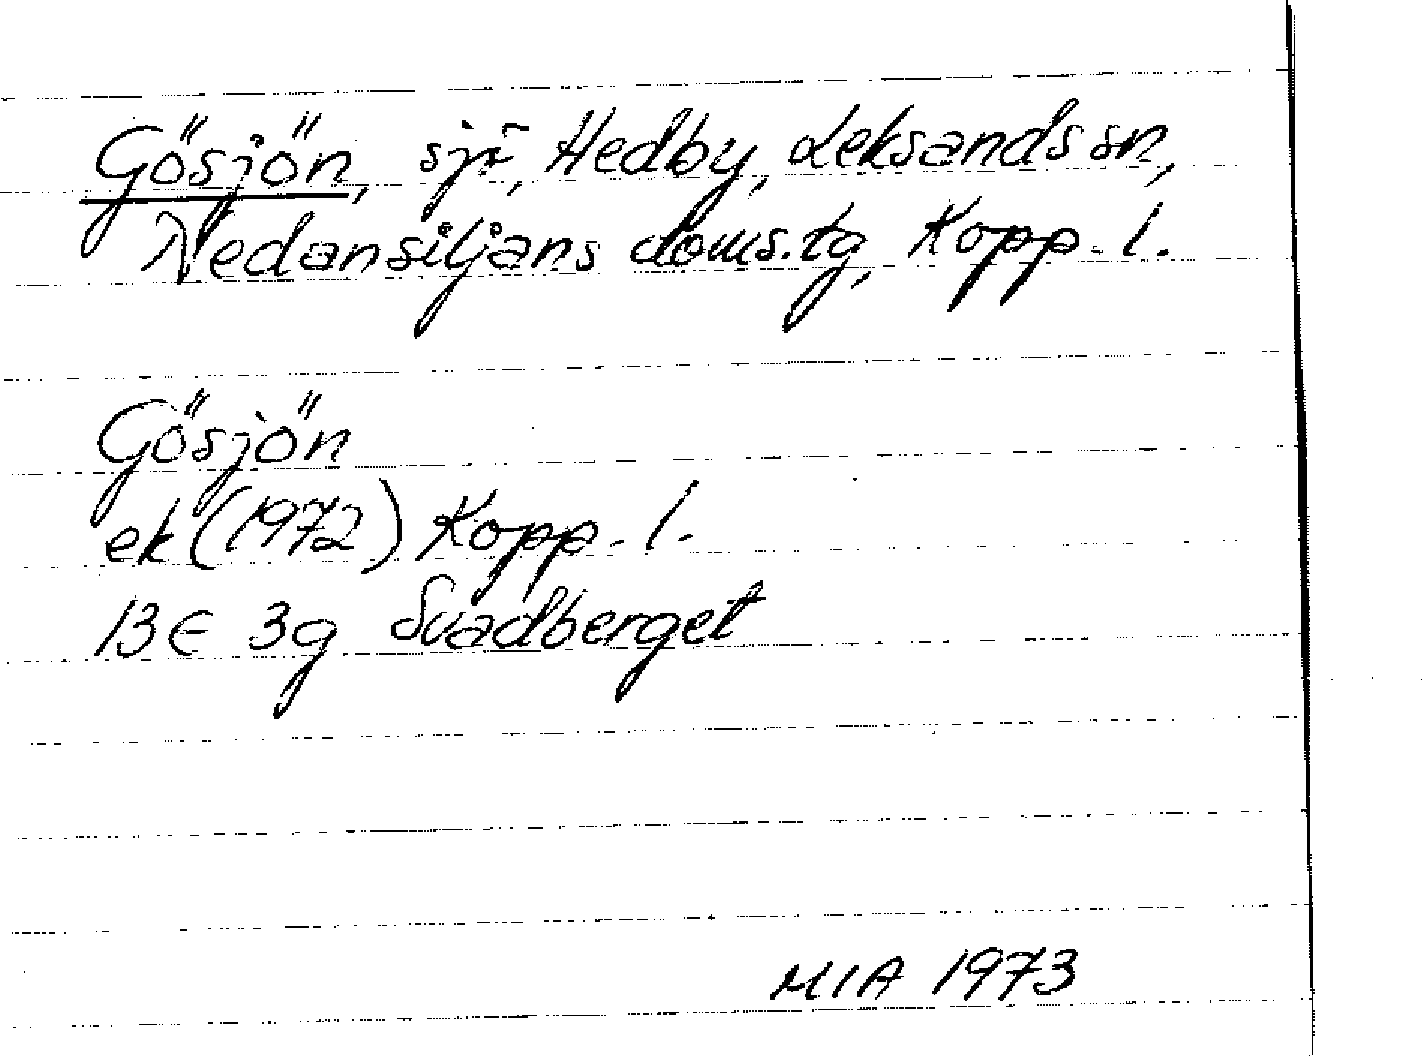 Gösjön, sjö, Hedby, Leksands sn,
Nedansiljans doms.tg, Kopp. l.
Gösjön
ek (1972) Kopp. l.
13E 3g Svadberget
MIA 1973